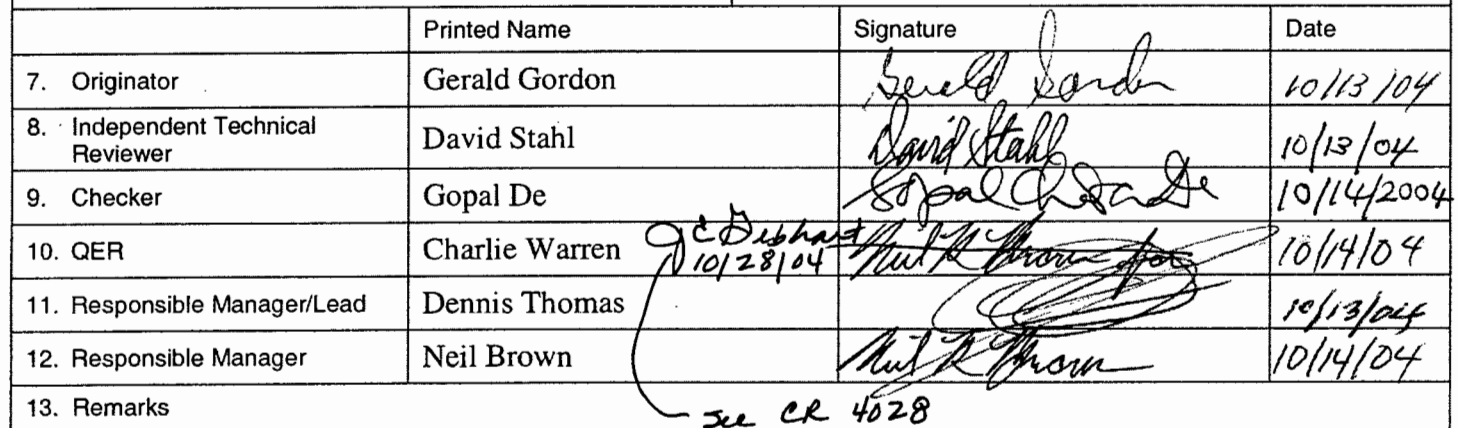 Printed Name Signature Date
7. Originator Gerald Gordon Gerald Gordon 10/13/04
8. Independent Technical
Reviewer David Stahl David Stahl 10/13/04
9. Checker Gopal De Gopal De 10/14/2004
10. QER Charlie Warren Neil R Brown for 10/14/04
C Gebhart
10/28/04
11. Responsible Manager/Lead Dennis Thomas 10/13/04
12. Responsible Manager Neil Brown Neil R Brown 10/14/04
13. Remarks
See CR 4028